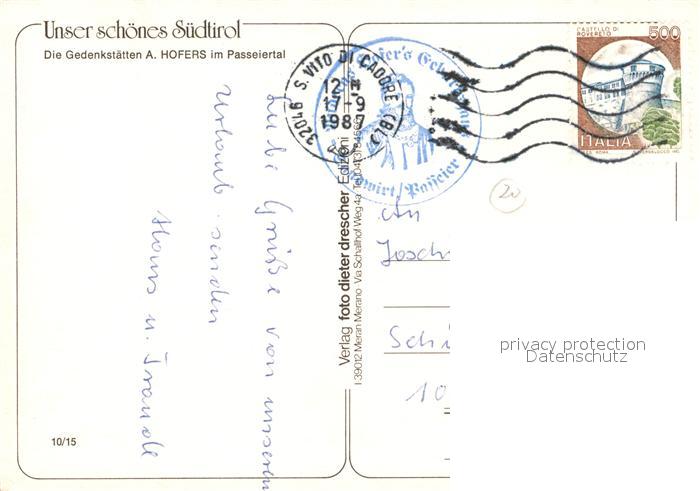 Unser schönes Südtirol
Die Gedenkstätten A. HOFERS im Passeiertal
Liebe Grüße von unserem
Urlaub senden
Hans u. Traudl
10/15
Verlag foto dieter drescher Edizioni
I 39012 Meran Merano Via Schallhof Weg 4a Tel.
32046 S. VITO DI CADORE (BL)
12
17-9
1987
Hofer's
Sandwirt/Passeier
CASTELLO DI
ROVERETO
500
ITALIA
20
An
Josch
Schi
10
privacy protection
Datenschutz